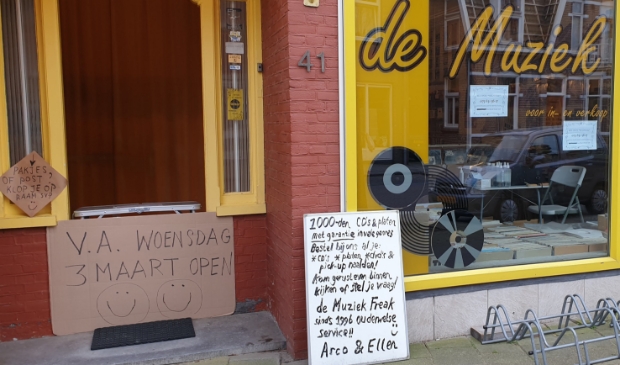 de Muziek
voor in- en verkoop
41
PAKJES,
OF POST
KLOP JE OP
RAAM 37
V.A. WOENSDAG
3 MAART OPEN
1000-den CD's & platen
met garantie
Bestel bij ons al je:
*CD's *platen *dvd's &
pick-up naalden!
Kom gerust even binnen
kijken of stel je vraag!
de Muziek Freak
sinds 1996 ouderwetse
service!!
Arco & Ellen